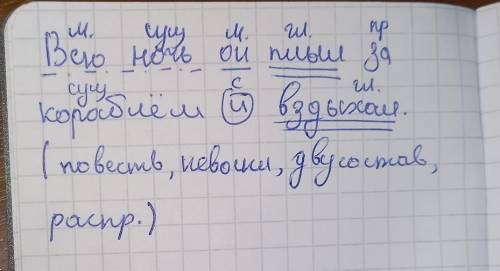 м. сущ м. гл. пр
Всю ночь он плыл за
сущ с гл.
кораблём и вздыхал.
(повеств, невоскл, двусостав,
распр.)